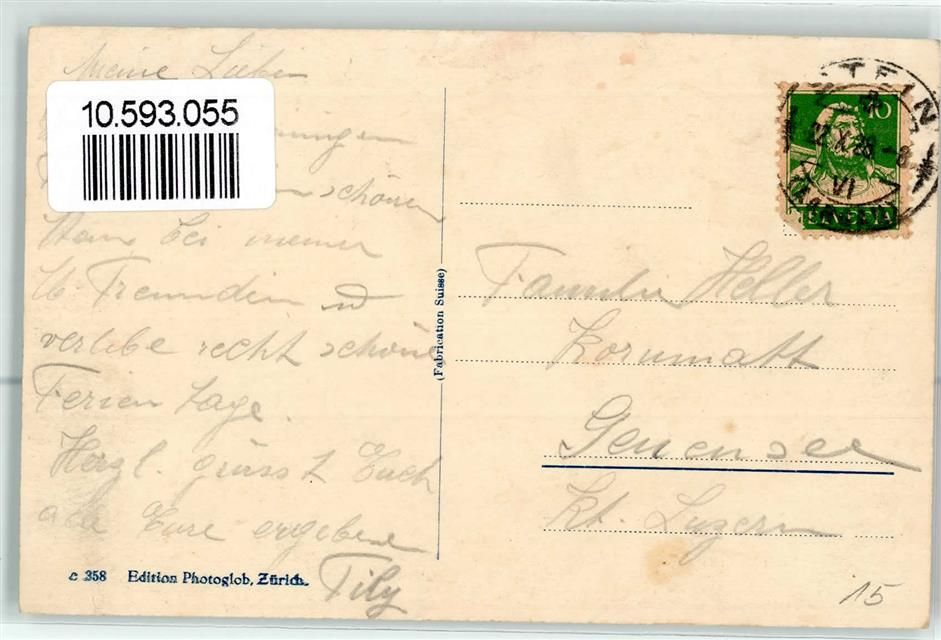 Meine Lieben
10.593.055
schönen
bei meiner
lb. Freundin u
verlebe recht schöne
Ferien tage.
Herzl. grüsst Euch
alle Eure ergebene
Tily
c 358 Edition Photoglob, Zürich.
(Fabrication Suisse)
STEIN
10
VI
HELVETIA
Familie Heller
Kornmatt
Geuensee
Kt. Luzern
15